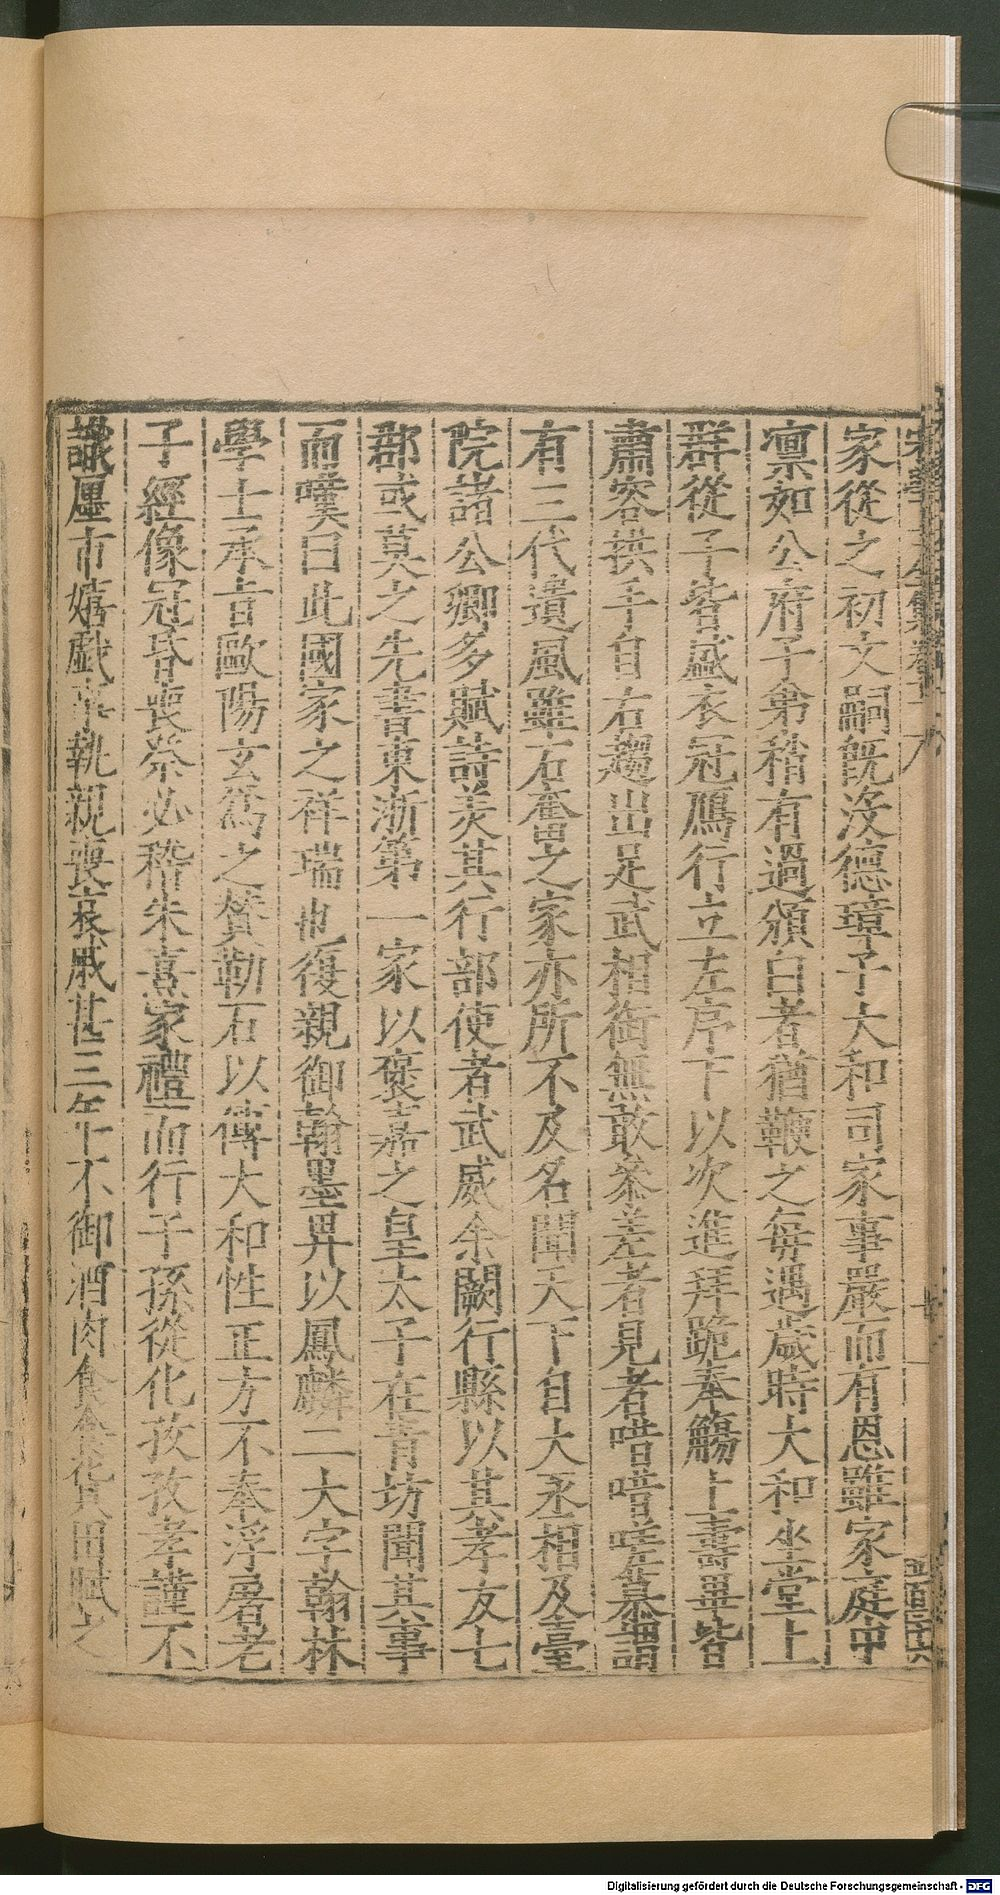 家從之初文嗣既沒德璋子大和司家事嚴而有恩雖家庭中
凛如公府子弟稍有過頒白者猶鞭之每遇歲時大和坐堂上
群從子皆盛衣冠鴈行立左序下以次進拜跪奉觴上壽畢皆
肅容拱手自右趨出足武相銜無敢叅差者見者嗟慕謂
有三代遺風雖石奮之家亦所不及名聞天下自大丞相及臺
院諸公卿多賦詩美其行部使者武威余闕行縣以其孝友七
郡或莫之先書東浙第一家以褒嘉之皇太子在青坊聞其事
而嘆曰此國家之祥瑞也復親御翰墨畀以鳳麟二大字翰林
學士承旨歐陽玄爲之贊勒石以傳大和性正方不奉浮屠老
子經像冠昏喪祭必稽朱熹家禮而行子孫從化孜孜孝謹不
識廛市嬉戲事執親喪哀戚甚三年不御酒肉食貨田賦之